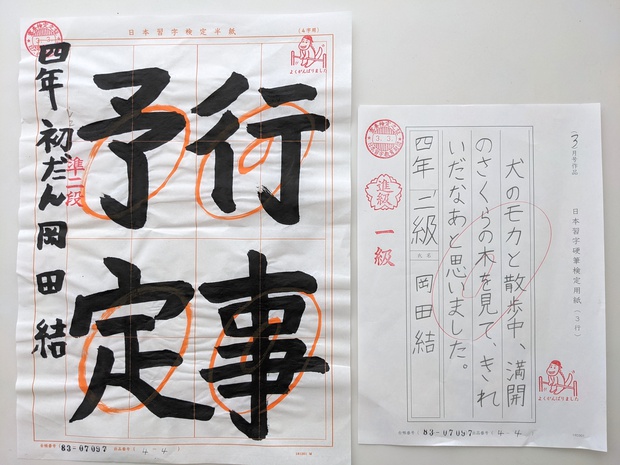 日本習字検定半紙
(4字用)
よくがんばりました
行事
予定
四年 初だん 岡田結
準二段
83-07097
4-4
3月号作品
日本習字硬筆検定用紙(3行)
犬のモカと散歩中、満開
のさくらの木を見て、きれ
いだなあと思いました。
四年 二級 岡田結
進級
一級
よくがんばりました
83-07097
4-4